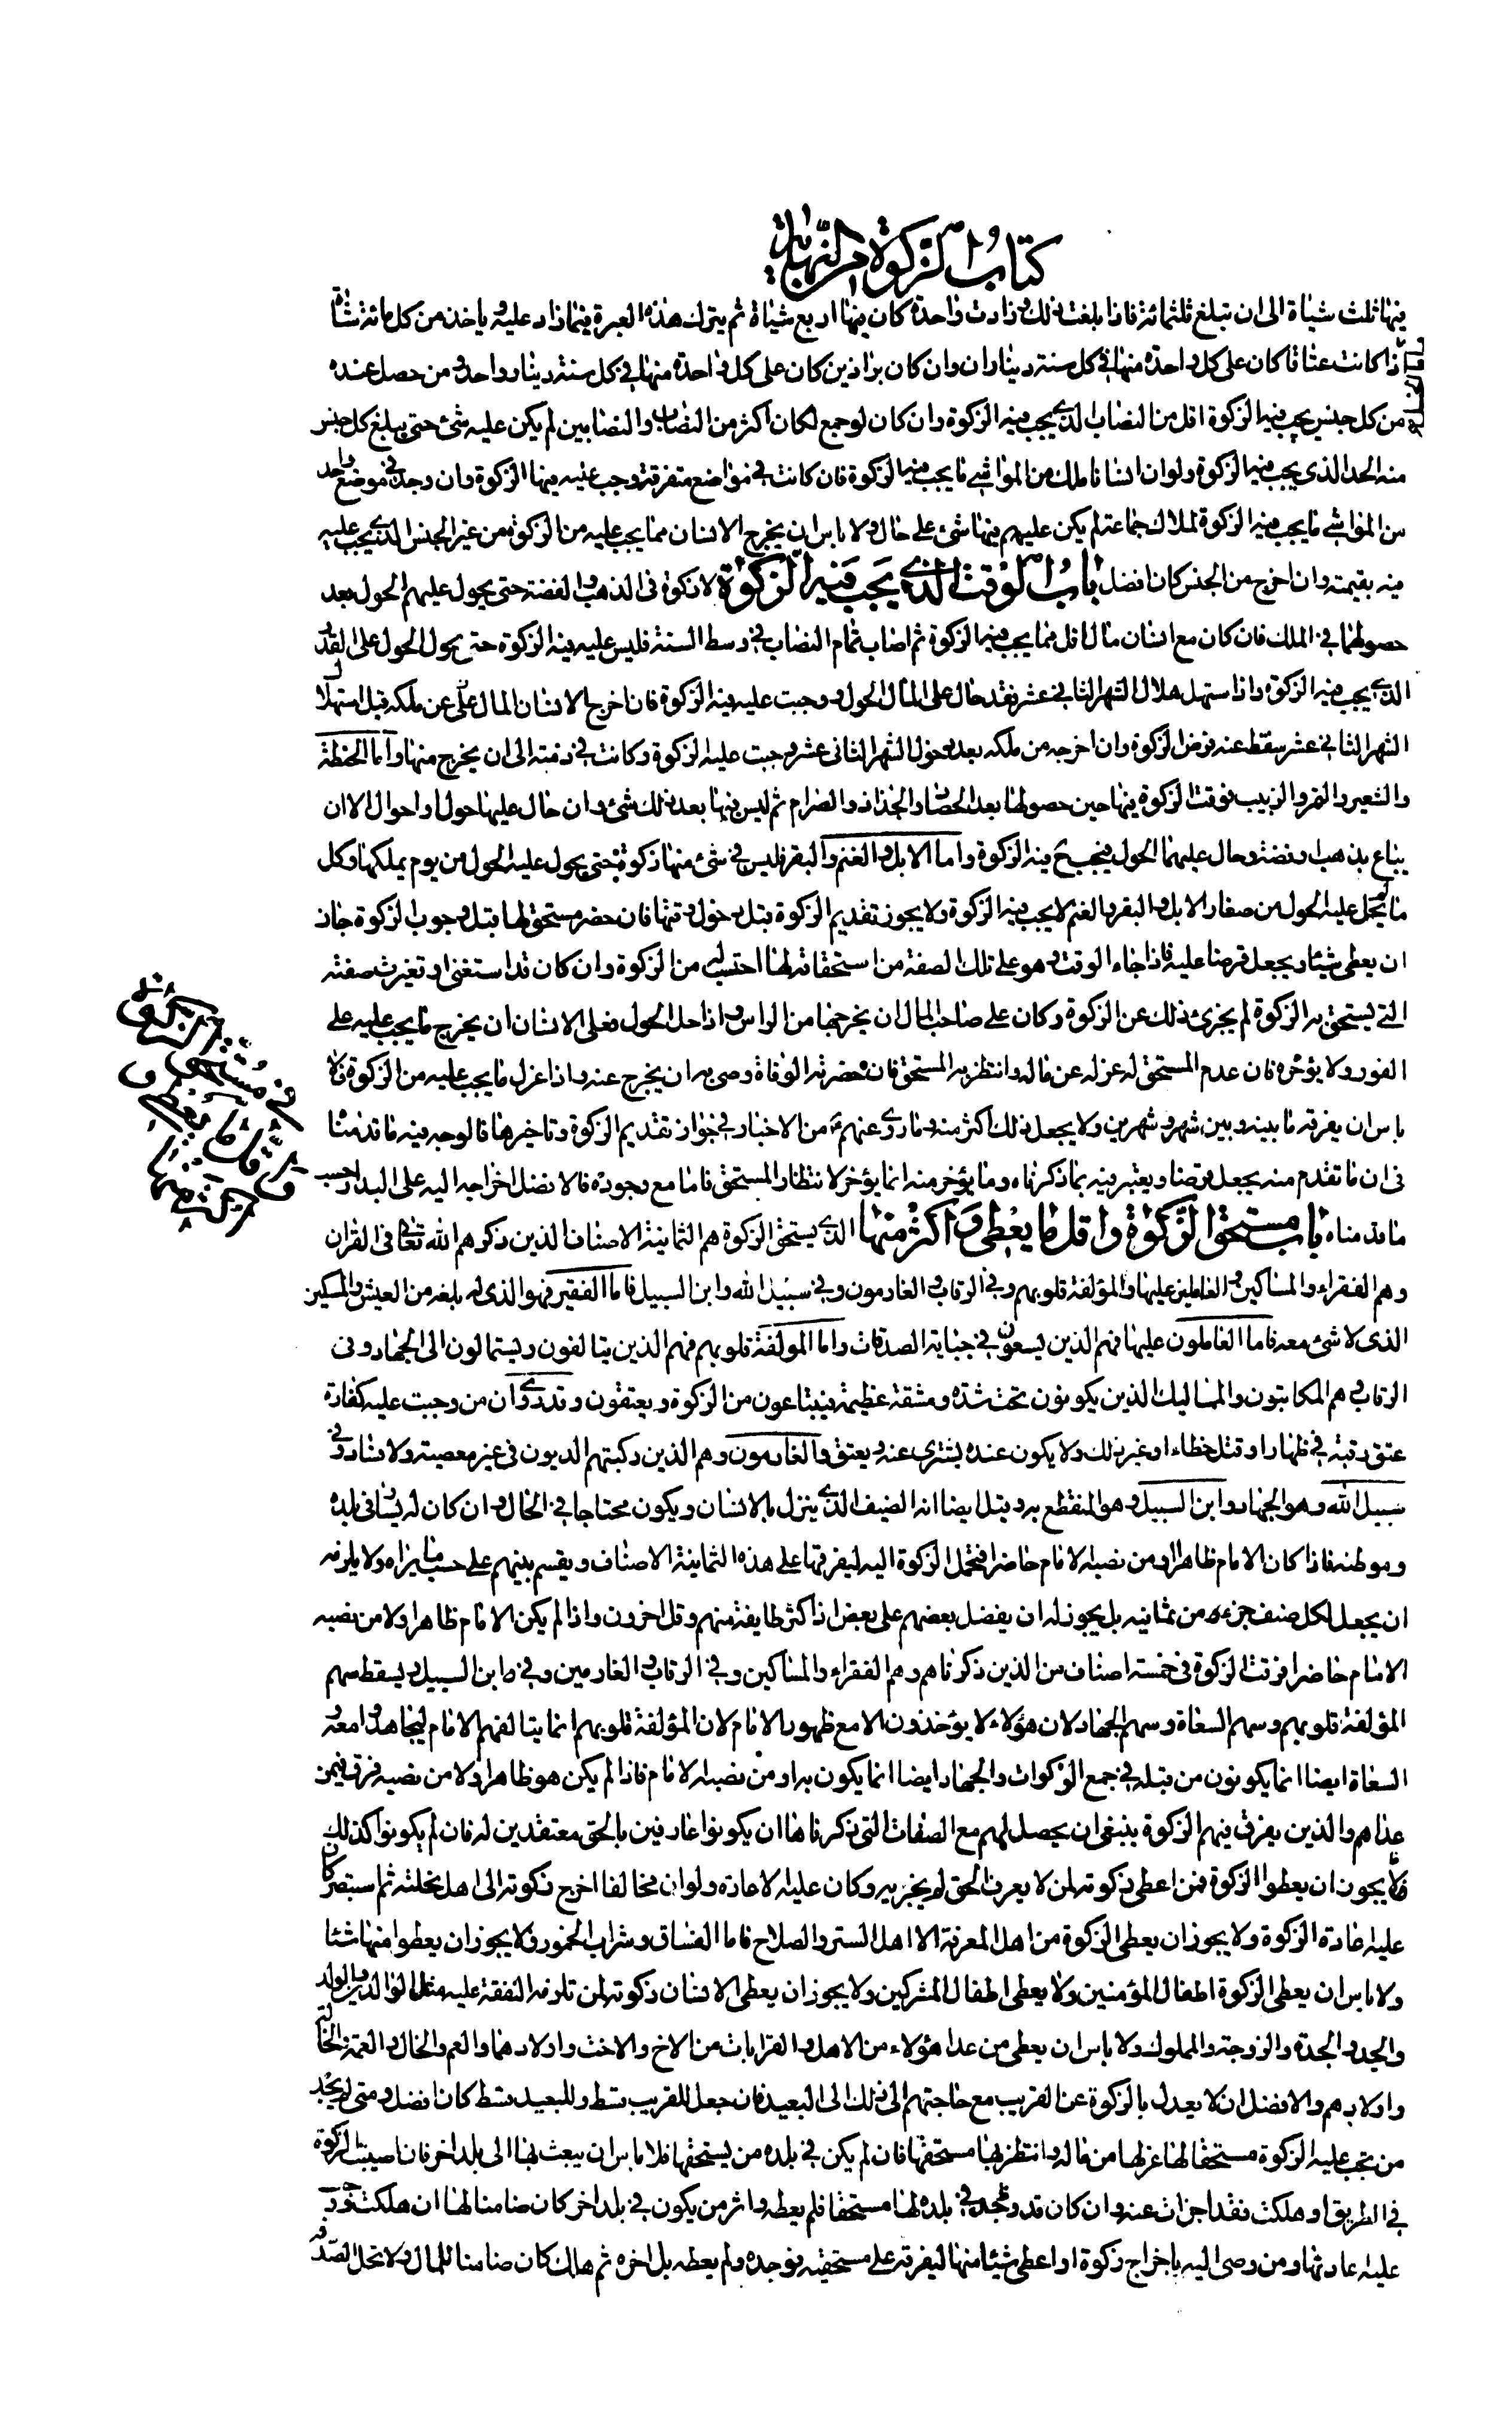 كتاب الزكوة من النهاية
فيها ثلث شياة الى ان تبلغ ثلثمائة فاذا بلغت ذلك وزادت واحدة كان فيها اربع شياة ثم يترك هذه العبرة فيما زاد عليه وياخذ من كل مائة شاة
واما الخيل
اذا كانت عتاقا كان على كل واحدة منها في كل سنة ديناران وان كان براذين كان على كل واحدة منها في كل سنة دينار واحد ومن حصل عنده
من كل جنس يجب فيه الزكوة اقل من النصاب الذى يجب فيه الزكوة وان كان لو جمع لكان اكثر من النصاب والنصابين لم يكن عليه شئ حتى يبلغ كل جنس
منه الحد الذى يجب فيه الزكوة ولو ان انسانا ملك من المواشى ما يجب فيه الزكوة فان كانت في مواضع متفرقة وجب عليه فيها الزكوة وان وجد في موضع واحد
من المواشى ما يجب فيه الزكوة لملاك جماعة لم يكن عليهم فيها شئ على حال ولا باس ان يخرج الانسان مما يجب عليه من الزكوة من غير الجنس الذى يجب عليه
فيه بقيمته وان اخرج من الجنس كان افضل باب الوقت الذى يجب فيه الزكوة لا زكوة فى الذهب والفضة حتى يحول عليهم الحول بعد
حصولهما في الملك فان كان مع انسان مال اقل مما يجب فيه الزكوة ثم اصاب تمام النصاب في وسط السنة فليس عليه فيه الزكوة حتى يحول الحول على القدر
الذى يجب فيه الزكوة واذا استهل هلال الشهر الثاني عشر فقد حال على المال الحول ووجبت عليه فيه الزكوة فان اخرج الانسان المال عن ملكه قبل استهلال
الشهر الثاني عشر سقط عنه فرض الزكوة وان اخرجه من ملكه بعد دخول الشهر الثانى عشر وجبت عليه الزكوة وكانت في ذمته الى ان يخرج منها واما الحنطة
والشعير والتمر والزبيب فوقت الزكوة فيها حين حصولها بعد الحصاد والجذاذ والصرام ثم ليس فيها بعد ذلك شئ وان حال عليها حول او احوال الا ان
يباع بذهب او فضة وحال عليهما الحول فيجب ح فيه الزكوة واما الابل والغنم والبقر فليس في شئ منها زكوة حتى يحول عليه الحول من يوم يملكها وكل
ما لم يحل عليه الحول من صغار الابل والبقر والغنم لا يجب فيه الزكوة ولا يجوز تقديم الزكوة قبل دخول وقتها فان حضر مستحق لها قبل وجوب الزكوة جاز
ان يعطى شيئا ويجعل قرضا عليه فاذا جاء الوقت وهو على تلك الصفة من استحقاقه لها احتسب له من الزكوة وان كان قد استغنى او تغيرت صفته
التى يستحق به الزكوة لم يجزئ ذلك عن الزكوة وكان على صاحب المال ان يخرجها من الراس واذا حل الحول فعلى الانسان ان يخرج ما يجب عليه على
الفور ولا يؤخره فان عدم المستحق له عزله عن ماله وانتظر به المستحق فان حضرته الوفاة وصى به ان يخرج عنه واذا عزل ما يجب عليه من الزكوة فلا
باس ان يفرقه ما بينه وبين شهر وشهرين ولا يجعل ذلك اكثر منه وما روى عنهم ع من الاخبار في جواز تقديم الزكوة وتاخيرها فالوجه فيه ما قدمنا
فى ان ما تقدم منه يجعل قرضا ويعتبر فيه بما ذكرناه وما يؤخر منه انما يؤخر لانتظار المستحق فاما مع وجوده فالافضل اخراجه اليه على البدار حسب
ما قدمناه باب مستحق الزكوة واقل ما يعطى واكثر منها الذى يستحق الزكوة هم الثمانية الاصناف الذين ذكرهم الله تعالى فى القران
وهم الفقراء والمساكين والعاملين عليها والمؤلفة قلوبهم وفي الرقاب والغارمون وفي سبيل الله وابن السبيل فاما الفقير فهو الذى له بلغة من العيش والمسكين
الذى لا شئ معه فاما العاملون عليها فهم الذين يسعون في جباية الصدقات واما المولفة قلوبهم فهم الذين يتالفون ويستمالون الى الجهاد وفى
الرقاب هم المكاتبون والمماليك الذين يكونون تحت شدة ومشقة عظيمة فيبتاعون من الزكوة ويعتقون وقد روى ان من وجبت عليه كفارة
عتق رقبة في ظهار او قتل خطاء او غير ذلك ولا يكون عنده يشترى عنه ويعتق والغارمون وهم الذين ركبتهم الديون فى غير معصية ولا فساد وفي
سبيل الله وهو الجهاد وابن السبيل وهو المنقطع به وقيل ايضا انه الضيف الذى ينزل بالانسان ويكون محتاجا في الحال وان كان له يسار فى بلده
وموطنه فاذا كان الامام ظاهرا او من نصبه الامام حاضرا فتحمل الزكوة اليه ليفرقها على هذه الثمانية الاصناف ويقسم بينهم على حسب ما يراه ولا يلزمه
ان يجعل لكل صنف جزءه من ثمانية بل يجوز له ان يفضل بعضهم على بعض اذا كثر طايفة منهم وقل اخرون واذا لم يكن الامام ظاهرا ولا من نصبه
الامام حاضرا فرقت الزكوة فى خمسة اصناف من الذين ذكرناهم وهم الفقراء والمساكين وفي الرقاب والغارمين وفي وابن السبيل ويسقط سهم
المؤلفة قلوبهم وسهم السعاة وسهم الجهاد لان هؤلاء لا يؤخذون الا مع ظهور الامام لان المؤلفة قلوبهم انما يتالفهم الامام ليجاهدوا معه و
السعاة ايضا انما يكونون من قبله في جمع الزكوات والجهاد ايضا انما يكون به او من نصبه الامام فاذا لم يكن هو ظاهرا ولا من نصبه فرق فيمن
عداهم والذين يفرق فيهم الزكوة ينبغى ان يحصل لهم مع الصفات التى ذكرناها ان يكونوا عارفين بالحق معتقدين له فان لم يكونوا كذلك
فلا يجوز ان يعطوا الزكوة فمن اعطى زكوته لمن لا يعرف الحق لم يجزيه وكان عليه الاعادة ولو ان مخالفا اخرج زكوته الى اهل نحلته ثم استبصر كان
عليه اعادة الزكوة ولا يجوز ان يعطى الزكوة من اهل المعرفة الا اهل الستر والصلاح فاما الفساق وشراب الخمور فلا يجوز ان يعطوا منها شئا
ولا باس ان يعطى الزكوة اطفال المؤمنين ولا يعطى اطفال المشركين ولا يجوز ان يعطى الانسان زكوته لمن تلزمه النفقة عليه مثل الوالدين والولد
والجد والجدة والزوجة والمملوك ولا باس ان يعطى من عدا هؤلاء من الاهل والقرابات من الاخ والاخت واولادهما والعم والخال والعمة والخالة
واولادهم والافضل ان لا يعدل بالزكوة عن القريب مع حاجتهم الى ذلك الى البعيد فان جعل للقريب قسط وللبعيد قسط كان افضل ومتى لم يجد
من تجب عليه الزكوة مستحقا لها عزلها من ماله وانتظر بها مستحقها فان لم يكن في بلده من يستحقها فلا باس ان يبعث بها الى بلد اخر فان اصيبت الزكوة
في الطريق او هلكت فقد اجزات عنه وان كان قد وجد في بلده لها مستحقا فلم يعطه واثر من يكون في بلد اخر كان ضامنا لها ان هلكت ووجب
عليه اعادتها ومن وصى اليه باخراج زكوة او اعطى شيئا منها ليفرقه على مستحقيه فوجده ولم يعطه بل اخره ثم هلك كان ضامنا للمال ولا تحل الصدقة
في مستحق الزكوة
واقل ما يعطى و
اكثر منها